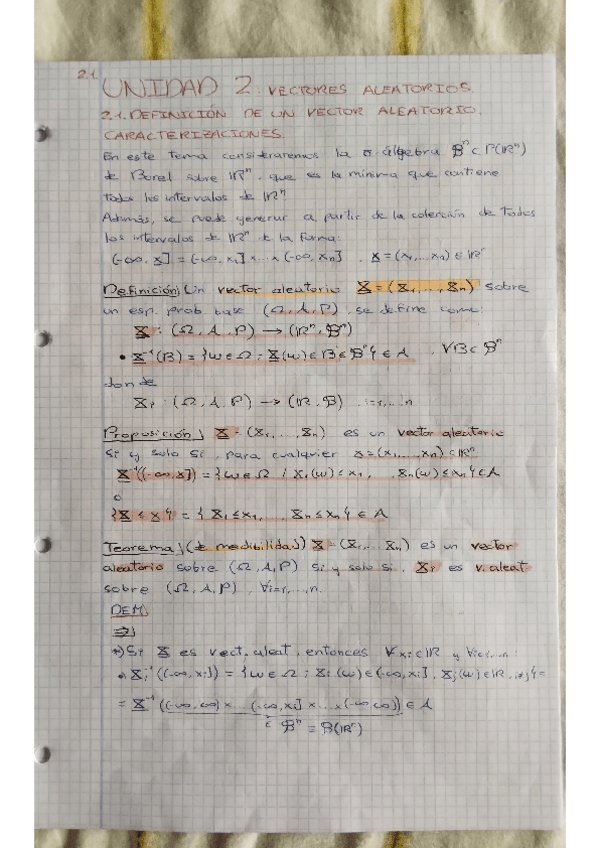 2.1.
UNIDAD 2 VECTORES ALEATORIOS.
2.1. DEFINICIÓN DE UN VECTOR ALEATORIO.
CARACTERIZACIONES
En este tema consideraremos la σ-álgebra 𝔅ⁿ ⊂ P(ℝⁿ)
de Borel sobre ℝⁿ, que es la mínima que contiene
todos los intervalos de ℝⁿ
Además, se puede generar a partir de la colección de todos
los intervalos de ℝⁿ de la forma:
(-∞, x] = (-∞, x₁] x...x (-∞, xₙ] , x = (x₁,...,xₙ) ∈ ℝⁿ
Definición) Un vector aleatorio X = (X₁,...,Xₙ) sobre
un esp. prob. base (Ω, A, P), se define como:
X : (Ω, A, P) → (ℝⁿ, 𝔅ⁿ)
• X⁻¹(B) = {ω ∈ Ω : X(ω) ∈ B ∈ 𝔅ⁿ} ∈ A , ∀B ∈ 𝔅ⁿ
donde
Xᵢ : (Ω, A, P) → (ℝ, 𝔅) i=1,...,n
Proposición) X = (X₁,...,Xₙ) es un vector aleatorio
si y solo si, para cualquier x = (x₁,...,xₙ) ∈ ℝⁿ
X⁻¹((-∞, x]) = {ω ∈ Ω / X₁(ω) ≤ x₁, ... Xₙ(ω) ≤ xₙ} ∈ A
o
{X ≤ x} = {X₁ ≤ x₁, ... Xₙ ≤ xₙ} ∈ A
Teorema) (de medibilidad) X = (X₁,...,Xₙ) es un vector
aleatorio sobre (Ω, A, P) si y solo si, Xᵢ es v. aleat
sobre (Ω, A, P), ∀i=1,...,n.
DEM)
⇒)
*) Si X es vect. aleat, entonces ∀xᵢ ∈ ℝ y ∀i=1,...,n:
• Xᵢ⁻¹((-∞, xᵢ]) = {ω ∈ Ω : Xᵢ(ω) ∈ (-∞, xᵢ], Xⱼ(ω) ∈ ℝ, i≠j} =
= X⁻¹((-∞, ∞) x... (-∞, xᵢ] x...x (-∞, ∞)) ∈ A
∈ 𝔅ⁿ = 𝔅(ℝⁿ)